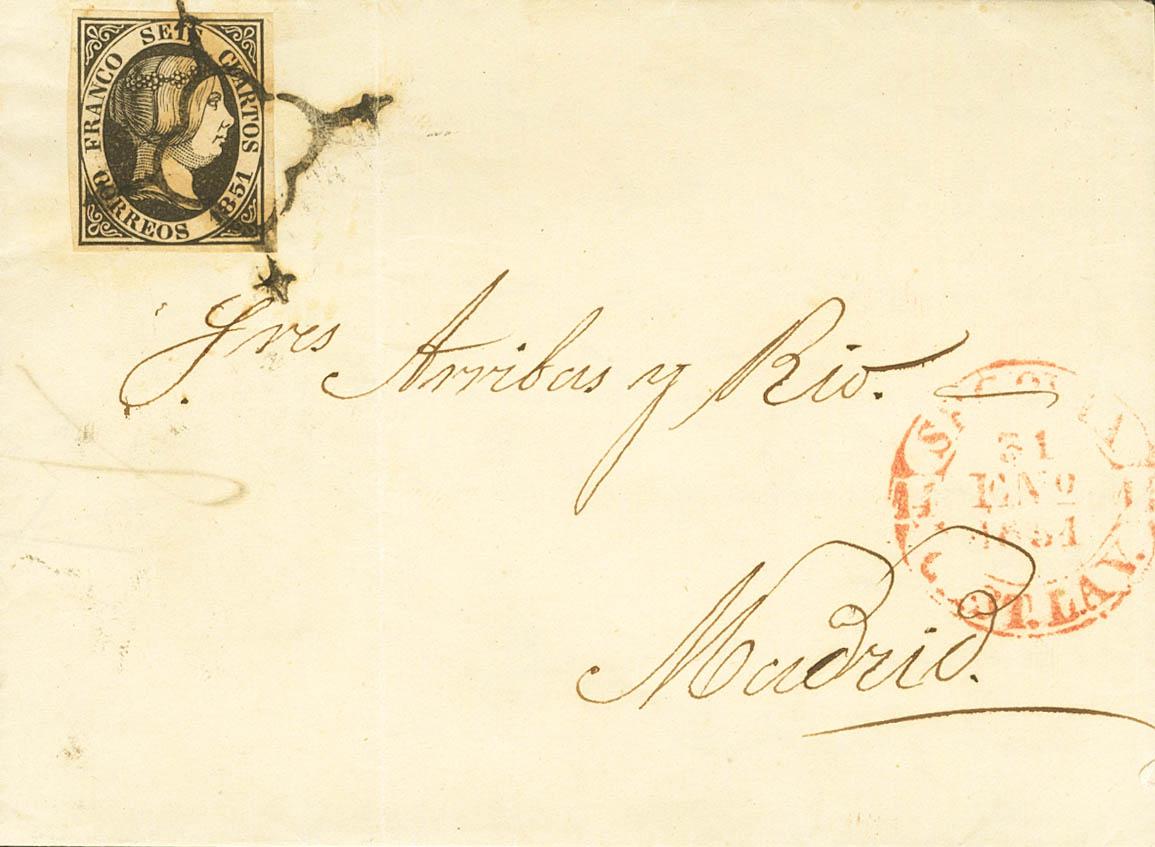 FRANCO SEIS CUARTOS
CORREOS 1851
Sres Arribas y Rio.
31
ENº
1851
Madrid.